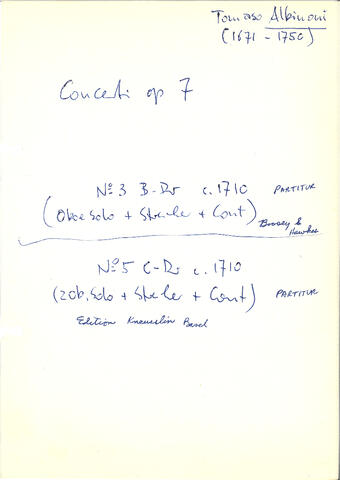 Tomaso Albinoni
(1671 - 1750)
Concerti op 7
No 3 B-Dr c. 1710 PARTITUR
(Oboe Solo + Streicher + Cont) Boosey &
Hawkes
No 5 C-Dr c. 1710
(2 Ob. Solo + Streicher + Cont) PARTITUR
Edition Kneusslin Basel